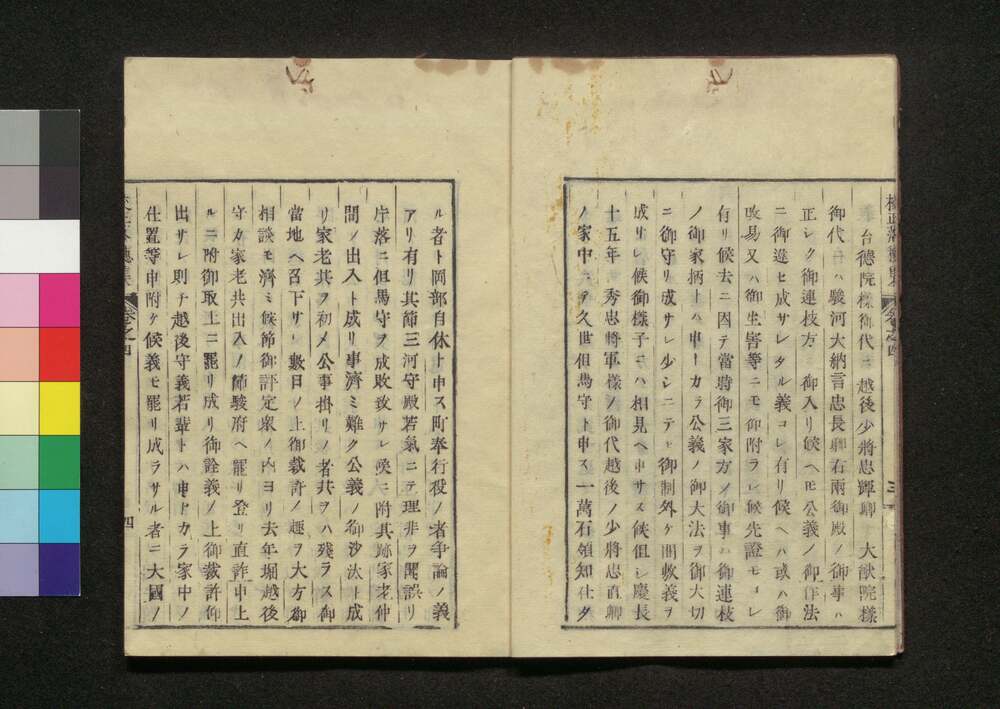 台德院樣御代ニ越後少將忠輝卿 大猷院樣
御代ニハ駿河大納言忠長卿右兩御殿ノ御事ハ
正シク御連枝方ニ御入リ候ヘ𪜈公義ノ御作法
ニ御違ヒ成サレタル義コレ有リ候ヘハ或ハ御
改易又ハ御生害等ニモ御附ラレ候先證モコレ
有リ候去ニ因テ當時御三家方ノ御事ハ御連枝
ノ御家柄トハ申シナカラ公義ノ御大法ヲ御大切
ニ御守リ成サレ少シニテモ御制外ケ間敷義ヲ
成サレ候御樣子ニハ相見ヘ申サス候但シ慶長
十五年 秀忠將軍樣ノ御代越後ノ少將忠直卿
ノ家中ニテ久世但馬守ト申ス一萬石領知仕タ
三
ル者ト岡部自休ト申ス町奉行役ノ者爭論ノ義
アリ有リ其節三河守殿若氣ニテ理非ヲ聞誤リ
片落ニ但馬守ヲ成敗致サレ候ニ附其跡家老仲
間ノ出入ト成リ事濟ミ難ク公義ノ御沙汰ト成
リ家老共ヲ初メ公事掛リノ者共ヲハ殘ラス御
當地ヘ召下サレ數日ノ上御裁許ノ趣ヲ大方御
相談モ濟ミ候節御評定衆ノ內ヨリ去年堀越後
守カ家老共出入ノ節駿府ヘ罷リ登リ直訴申上
ルニ附御取上ニ罷リ成リ御詮義ノ上御裁許仰
出サレ則チ越後守義若輩トハ申シナカラ家中ノ
仕置等申附ケ候義モ罷リ成ラサル者ニ大國ノ
四